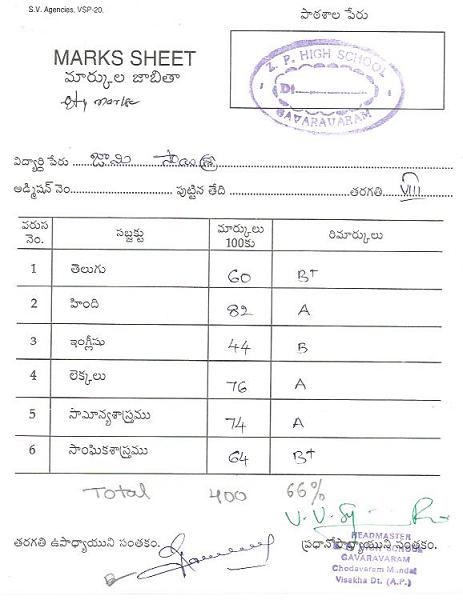 S.V. Agencies, VSP-20.
పాఠశాల పేరు
MARKS SHEET
మార్కుల జాబితా
Z. P. HIGH SCHOOL
Dt
GAVARAVARAM
విద్యార్థి పేరు జామి
అడ్మిషన్ నెం. పుట్టిన తేది తరగతి VIII
వరుస నెం. సబ్జక్టు మార్కులు 100కు రిమార్కులు
1 తెలుగు 60 B+
2 హింది 82 A
3 ఇంగ్లీషు 44 B
4 లెక్కలు 76 A
5 సామాన్యశాస్త్రము 74 A
6 సాంఘికశాస్త్రము 64 B+
Total 400 66%
తరగతి ఉపాధ్యాయుని సంతకం. ప్రధానోపాధ్యాయుని సంతకం.
HEADMASTER
HIGH SCHOOL
GAVARAVARAM
Chodavaram Mandal
Visakha Dt. (A.P.)